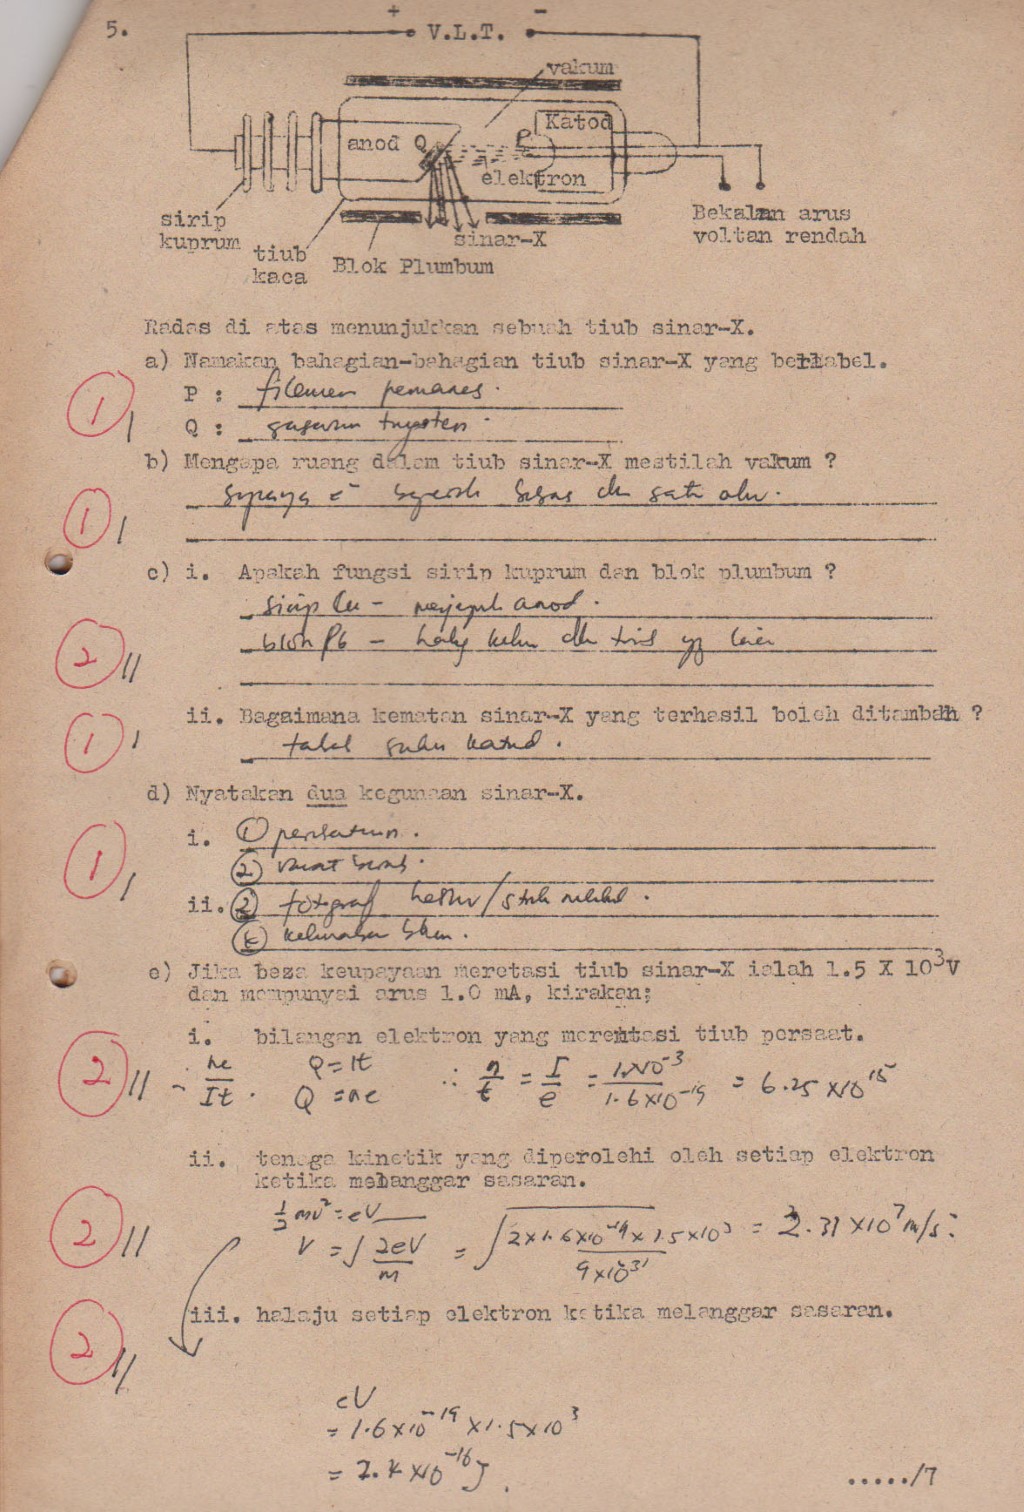 5.
+ -
V.L.T.
vakum
Katod
anod Q
P
elektron
sirip
kuprum
tiub
kaca
Blok Plumbum
sinar-X
Bekalan arus
voltan rendah
Radas di atas menunjukkan sebuah tiub sinar-X.
a) Namakan bahagian-bahagian tiub sinar-X yang berlabel.
P : filamen pemanas.
1
Q : sasaran tungsten
b) Mengapa ruang dalam tiub sinar-X mestilah vakum ?
supaya e⁻ bergerak bebas
1
c) i. Apakah fungsi sirip kuprum dan blok plumbum ?
sirip Cu - menyejuk anod.
blok Pb -
2
ii. Bagaimana kematan sinar-X yang terhasil boleh ditambah ?
1
suhu katod.
d) Nyatakan dua kegunaan sinar-X.
i. ①
1
②
ii. ② fotograf
e) Jika beza keupayaan meretasi tiub sinar-X ialah 1.5 X 10³V
dan mempunyai arus 1.0 mA, kirakan;
i. bilangan elektron yang merentasi tiub persaat.
2
ne/It . Q = It ∴ n/t = I/e = 1x10⁻³/1.6x10⁻¹⁹ = 6.25 x10¹⁵
Q = ne
ii. tenaga kinetik yang diperolehi oleh setiap elektron
ketika melanggar sasaran.
2
½ mv² = eV
V = √2eV/m = √2x1.6x10⁻¹⁹x1.5x10³/9x10⁻³¹ = 2.31 x10⁷ m/s
iii. halaju setiap elektron ketika melanggar sasaran.
2
eV
= 1.6x10⁻¹⁹ x1.5x10³
= 2.4 x10⁻¹⁶ J.
...../7